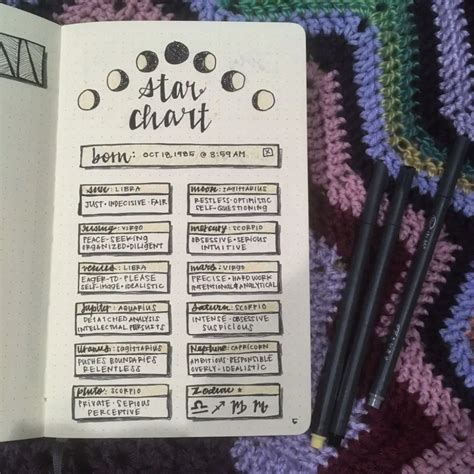 NN
star
chart
born: OCT 18, 1985 @ 3:59 AM
sun: LIBRA
JUST • INDECISIVE • FAIR
moon: SAGITTARIUS
RESTLESS • OPTIMISTIC
SELF-QUESTIONING
rising: VIRGO
PEACE-SEEKING
ORGANIZED • DILIGENT
mercury: SCORPIO
OBSESSIVE • SERIOUS
INTUITIVE
venus: LIBRA
EAGER-TO-PLEASE
SELF-IMAGE • IDEALISTIC
mars: VIRGO
PRECISE • HARD WORK
INTENTIONAL • ANALYTICAL
jupiter: AQUARIUS
DETATCHED ANALYSIS
INTELLECTUAL PURSUITS
Saturn: SCORPIO
INTENSE • OBSESSIVE
SUSPICIOUS
Uranus: SAGITTARIUS
PUSHES BOUNDARIES
RELENTLESS
Neptune: CAPRICORN
AMBITIOUS • RESPONSIBLE
OVERLY • IDEALISTIC
pluto: SCORPIO
PRIVATE • SERIOUS
PERCEPTIVE
Zodiac ★
♎ ♐ ♍ ♏